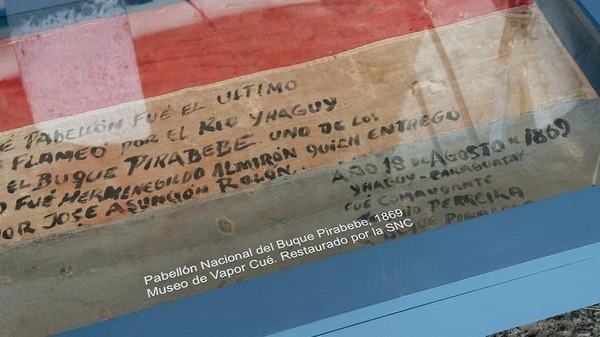 E PABELLÓN FUÉ EL ULTIMO
E FLAMEÓ POR EL RIO YHAGUY
EL BUQUE PIRABEBE UNO DE LOS
O FUÉ HERMENEGILDO ALMIRÓN QUIEN ENTREGÓ
POR JOSE ASUNCIÓN ROLÓN.
AÑO 18 DE AGOSTO DE 1869
YHAGUY-CARAGUATAY
FUÉ COMANDANTE
PEREEIRA
BUQUE
Pabellón Nacional del Buque Pirabebe, 1869
Museo de Vapor Cué. Restaurado por la SNC